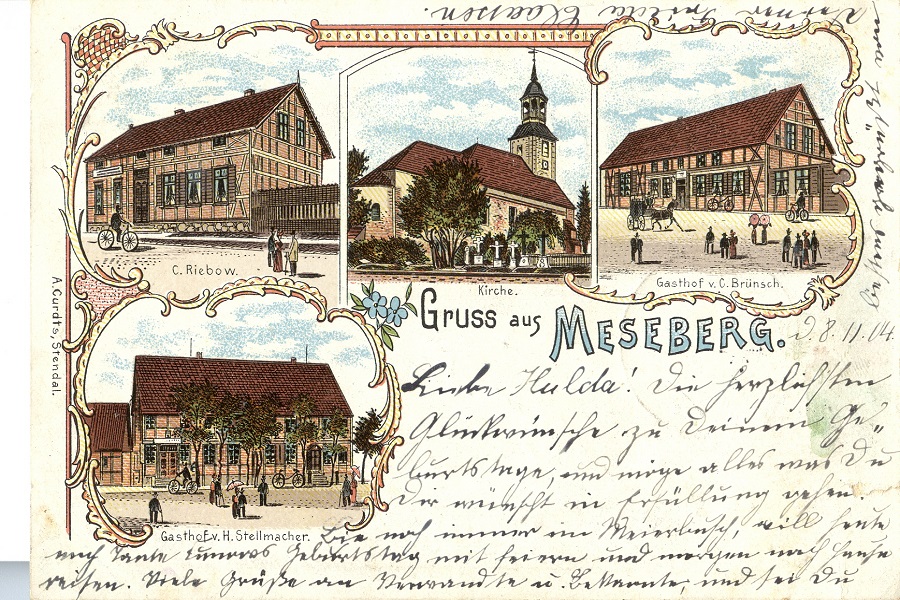 C. Riebow.
Kirche.
Gasthof v. C. Brünsch.
Gasthof v. H. Stellmacher.
A. Curdts, Stendal.
Gruss aus MESEBERG.
d. 8. 11. 04.
Liebe Hulda! Die herzlichsten
Glückwünsche zu Deinem Ge-
burtstage, und möge alles was Du
Dir wünscht in Erfüllung gehen.
Bin noch immer im Meierbusch, will heute
noch Tante Geburtstag mit feiern und morgen nach Hause
reisen. Viele Grüße an Verwandte u. Bekannte, und sei Du
Claassen.